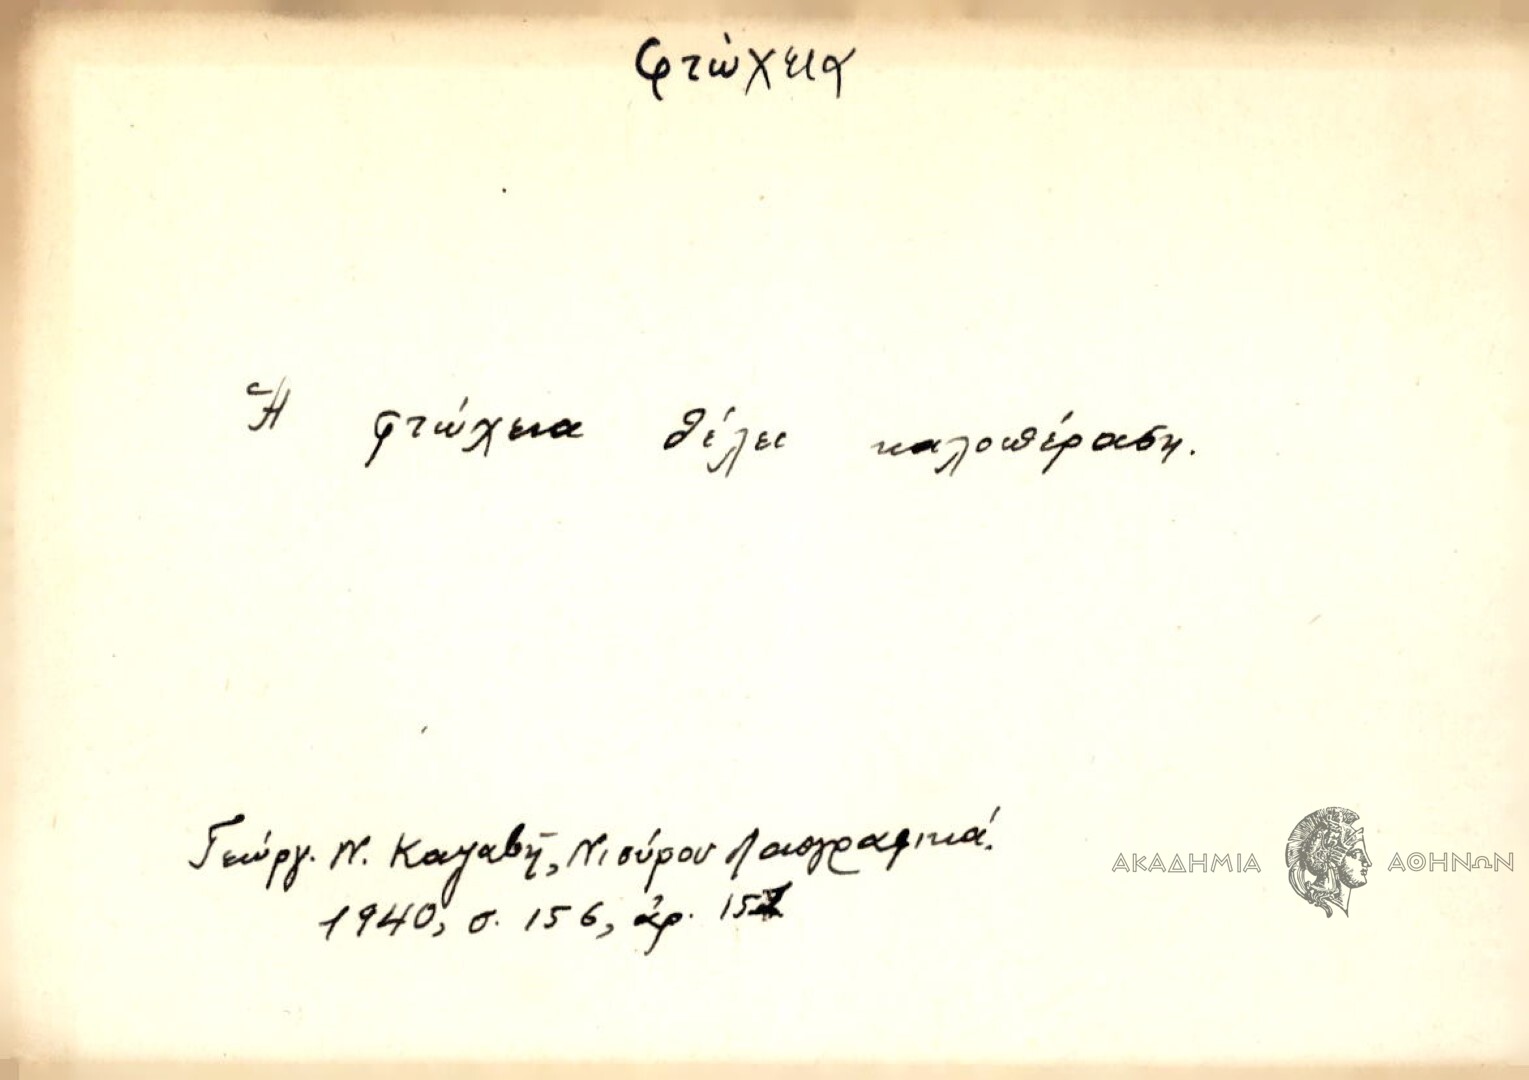 φτώχεια
Ἡ φτώχεια θέλει καλοπέραση.
Γεώργ. Ν. Καζαβῆ, Νισύρου Λαογραφικά.
1940, σ. 156, ἀρ. 157
ΑΚΑΔΗΜΙΑ ΑΘΗΝΩΝ